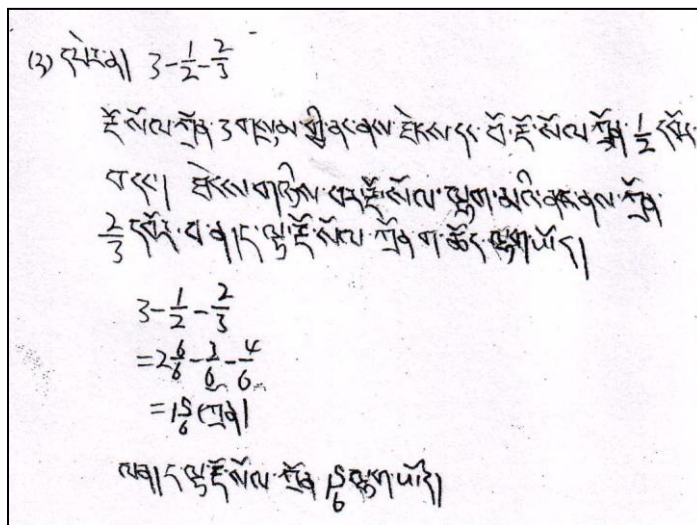 (3) དཔེར་ན། 3-1/2-2/3
རྡོ་སོལ་ཀྲོན་ 3 གསུམ་གྱི་ནང་ནས་ཐེངས་དང་པོ་རྡོ་སོལ་ཀྲོན་ 1/2 དབོར་
བ་དང་། ཐེངས་གཉིས་པར་རྡོ་སོལ་ལྷག་མའི་ནང་ནས་ཀྲོན་
2/3 དབོར་བ་ན། ད་ལྟ་རྡོ་སོལ་ཀྲོན་ག་ཚོད་ལྷག་ཡོད།
3-1/2-2/3
=2 6/6-3/6-4/6
=1 5/6 (ཀྲོན།
ལན། ད་ལྟ་རྡོ་སོལ་ཀྲོན་ 1 5/6 ལྷག་ཡོད།